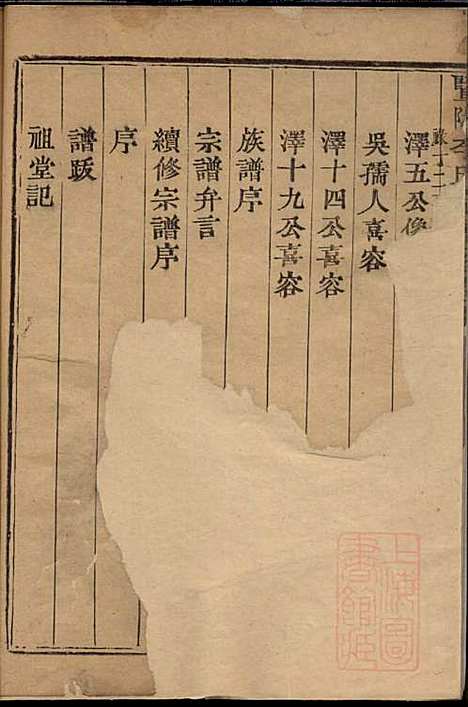 暨陽李氏
澤五公像
吳孺人喜容
澤十四公喜容
澤十九公喜容
族譜序
宗譜弁言
續修宗譜序
序
譜跋
祖堂記
上海圖
書館藏